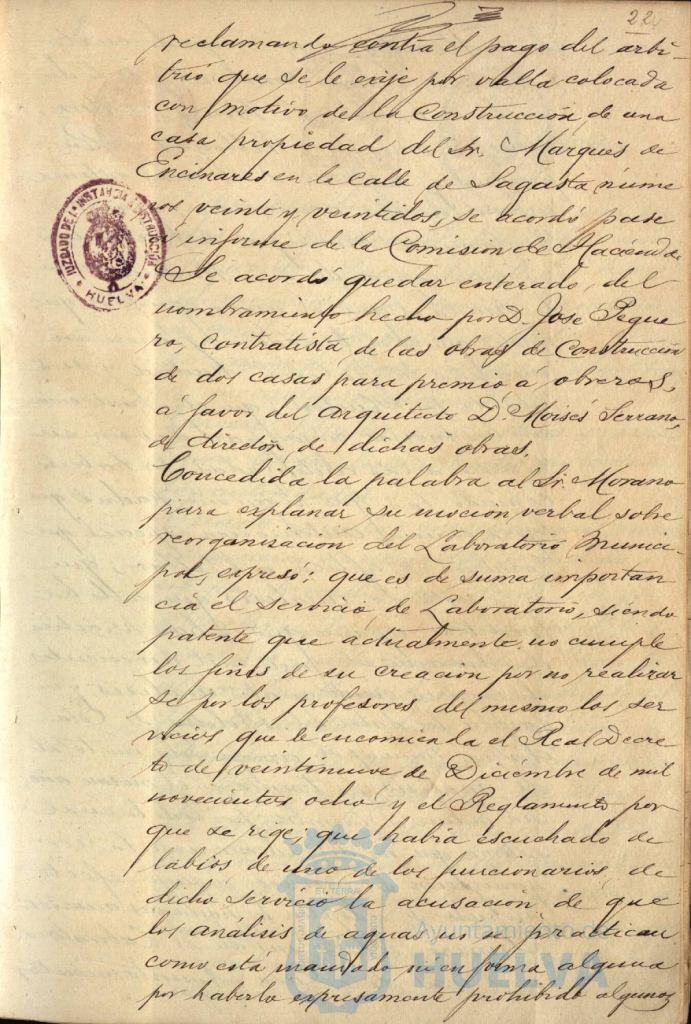 22
reclamando contra el pago del arbi-
trio que se le exije por valla colocada
con motivo de la Construcción de una
casa propiedad del Sr. Marqués de
Encinares en la calle de Sagasta núme
ros veinte y veintidos, se acordó pase
á informe de la Comision de Hacienda
Se acordó quedar enterado, del
nombramiento hecho por D. José Pegue
ro, contratista de las obras de Construcción
de dos casas para premio á obreros,
á favor del arquitecto D. Moisés Serrano,
de director de dichas obras.
Concedida la palabra al Sr. Morano
para explanar su moción verbal sobre
reorganización del Laboratorio Munici-
pal, expresó: que es de suma importan
cia el servicio de Laboratorio, siendo
patente que actualmente no cumple
los fines de su creacion por no realizar
se por los profesores del mismo los ser
vicios que le encomienda el Real Decre
to de veintinueve de Diciembre de mil
novecientos ocho y el Reglamento por
que se rige; que había escuchado de
labios de uno de los funcionarios de
dicho servicio la acusación de que
los análisis de aguas no se practican
como está mandado ni en forma alguna
por haberlo expresamente prohibido algunos
JUZGADO DE 1ª INSTANCIA É INSTRUCCION
HUELVA
Ayuntamiento de
HUELVA